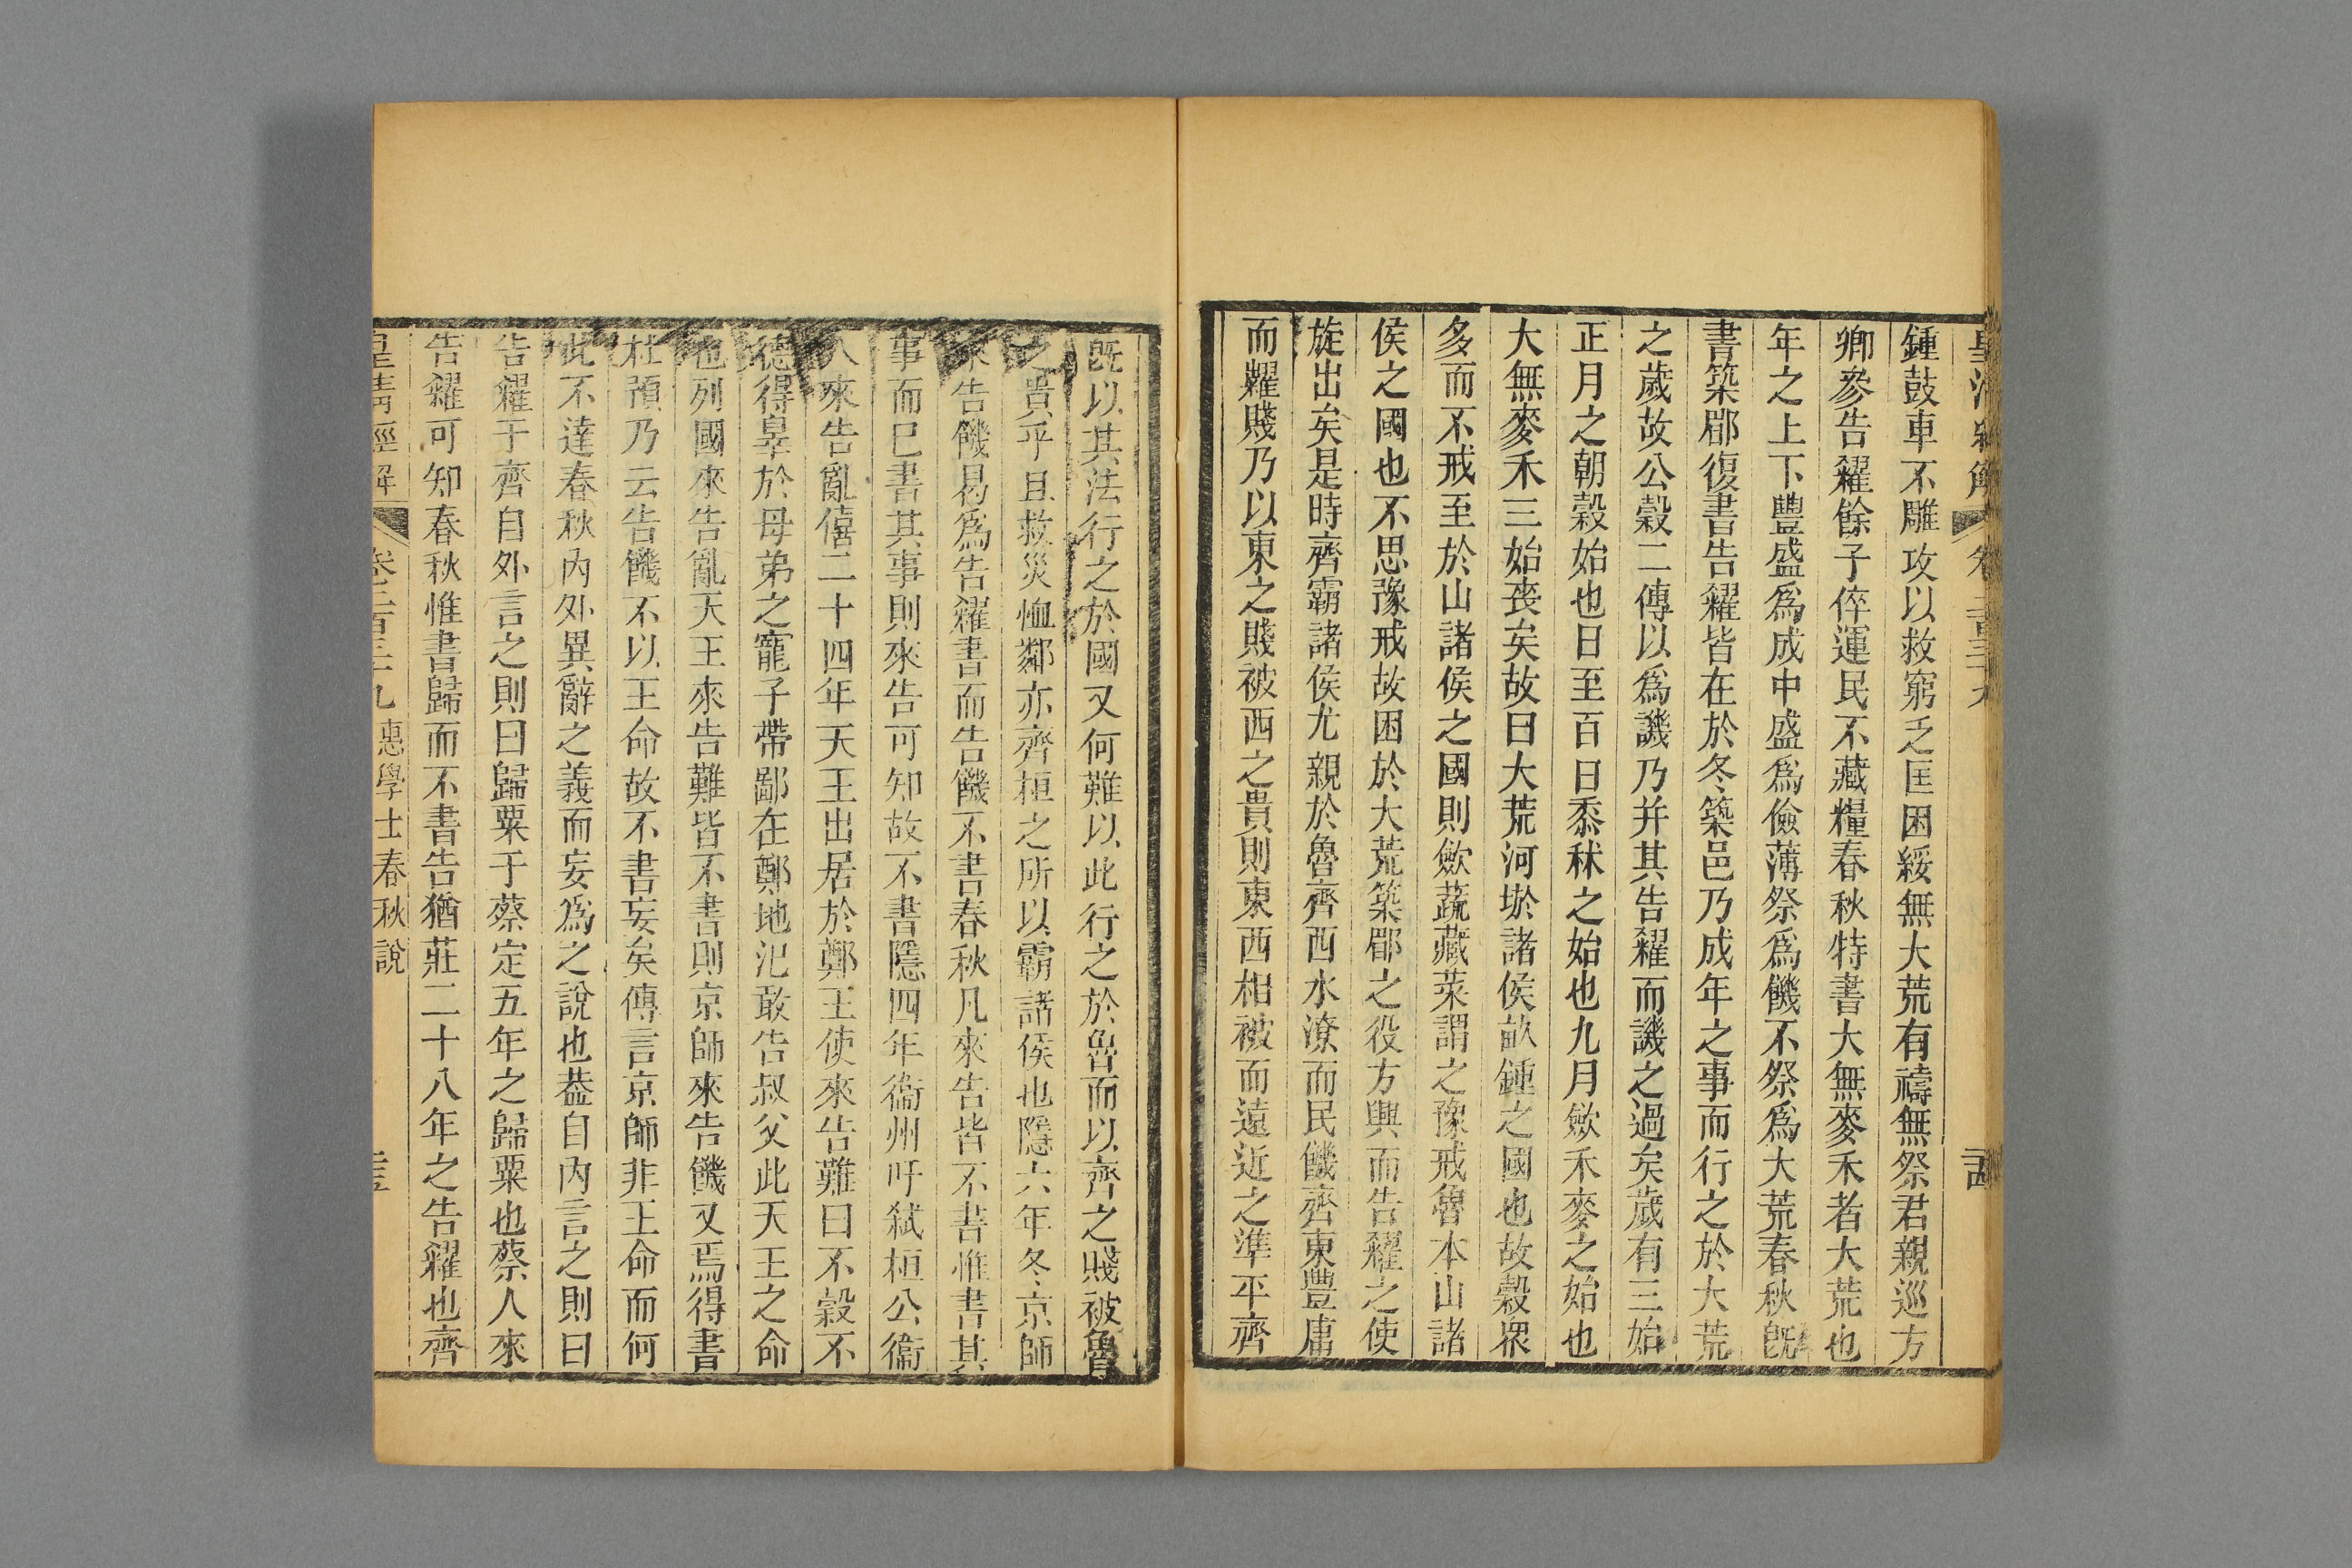 鍾鼓車不雕攻以救窮乏匡困綏無大荒有禱無祭君親巡方
卿參告糴餘子倅運民不藏糧春秋特書大無麥禾者大荒也
年之上下豐盛爲成中盛爲儉薄祭爲饑不祭爲大荒春秋旣
書築郿復書告糴皆在於冬築邑乃成年之事而行之於大荒
之歲故公穀二傳以爲譏乃并其告糴而譏之過矣歲有三始
正月之朝穀始也日至百日黍秫之始也九月斂禾麥之始也
大無麥禾三始喪矣故曰大荒河埉諸侯畝鍾之國也故穀衆
多而不戒至於山諸侯之國則斂蔬藏菜謂之豫戒魯本山諸
侯之國也不思豫戒故困於大荒築郿之役方興而告糴之使
旋出矣是時齊霸諸侯尤親於魯齊西水潦而民饑齊東豐庸
而糶賤乃以東之賤被西之貴則東西相被而遠近之準平齊
旣以其法行之於國又何難以此行之於魯而以齊之賤被魯
之貴乎且救災恤鄰亦齊桓之所以霸諸侯也隱六年冬京師
來告饑曷爲告糴書而告饑不書春秋凡來告皆不書惟書其
事而已書其事則來告可知故不書隱四年衞州吁弑桓公衞
人來告亂僖二十四年天王出居於鄭王使來告難曰不穀不
德得辠於母弟之寵子帶鄙在鄭地氾敢告叔父此天王之命
也列國來告亂天王來告難皆不書則京師來告饑又焉得書
杜預乃云告饑不以王命故不書妄矣傳言京師非王命而何
此不達春秋內外異辭之義而妄爲之說也葢自內言之則曰
告糴于齊自外言之則曰歸粟于蔡定五年之歸粟也蔡人來
告糴可知春秋惟書歸而不書告猶莊二十八年之告糴也齊
皇清經解 卷二百三十九惠學士春秋說